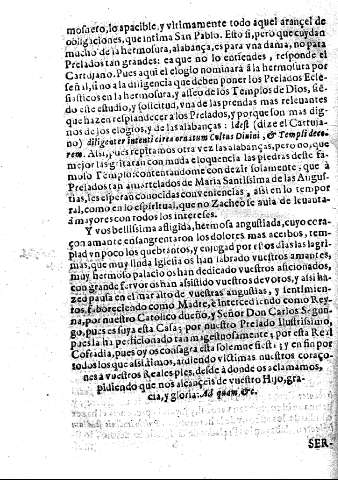 mosuero, lo apacible, y vltimamente todo aquel arançel de
obligaciones, que intima San Pablo. Esto si, pero que cuydan
mucho de la hermosura, alabança, es para vna dama, no para
Prelados tan grandes: ea que no lo entiendes, responde el
Cartujano. Pues aqui el elogio nominarà a la hermosura por
señal, sino a la diligencia que deben poner los Prelados Ecle-
siasticos en la hermosura, y asseo de los Templos de Dios, siẽ-
do este estudio, y solicitud, vna de las prendas mas releuantes
que hazen resplandecer a los Prelados, y porque son mas dig-
nos de los elogios, y de las alabanças: Idest (dize el Cartuja-
no) diligenter intenti circa ornatum Cultus Divini, & Templi deco-
rem. Assi, pues repitamos otra vez las alabanças, pero no, que
mejor las gritaràn con muda eloquencia las piedras deste fa-
moso Templo contentandome con dezir solamente, que à
Prelados tan amartelados de Maria Santissima de las Angus-
tias, les esperan conocidas conveniencias, assi en lo tempo-
ral, como en lo espiritual, que no Zacheose aula de leuanta-
a mayores con todos los intereses.
Y vos bellissima afligida, hermosa angustiada, cuyo cora-
çon amante ensangrentaron los dolores mas acerbos, tem-
plad vn poco los quebrantos, y enjugad por estos dias las lagri-
mas, que muy linda Iglesia os han labrado vuestros amantes,
muy hermoso palacio os han dedicado vuestros aficionados,
con grande fervor os han assistido vuestros devotos, y assi ha-
zed pausa en el mar alto de vuestras angustias, y sentimien-
tos, fauoreciendo como Madre, è intercediendo como Rey-
na, por nuestro Catolico dueño, y Señor Don Carlos Segun-
do, pues es suya esta Casa; por nuestro Prelado Ilustrissimo,
pues la ha perficionado tan magestuosamente; por esta Real
Cofradia, pues oy os consagra esta solemne fiesta; y en fin por
todos los que assistimos, ardiendo victimas nuestros coraço-
nes à vuestros Reales pies, desde à donde os aclamamos,
pidiendo que nos alcanceis de vuestro Hijo, gra-
cia, y gloria: Ad quam, &c.
SER-